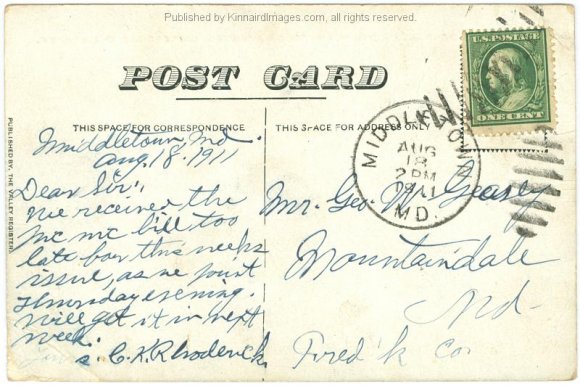 Published by KinnairdImages.com, all rights reserved.
U.S. POSTAGE
ONE CENT
POST CARD
THIS SPACE FOR CORRESPONDENCE
THIS SPACE FOR ADDRESS ONLY
PUBLISHED BY THE VALLEY REGISTER
MIDDLETOWN
AUG
18
2 PM
1911
MD.
Middletown, Md.
Aug. 18, 1911
Dear Sir:
We received the
bill too
late for this weeks
issue, as we print
Thursday evening.
Will get it in next
week.
C. K. Rhoderick
Mr. Geo. W.
Mountaindale
Md.
Fred'k Co.